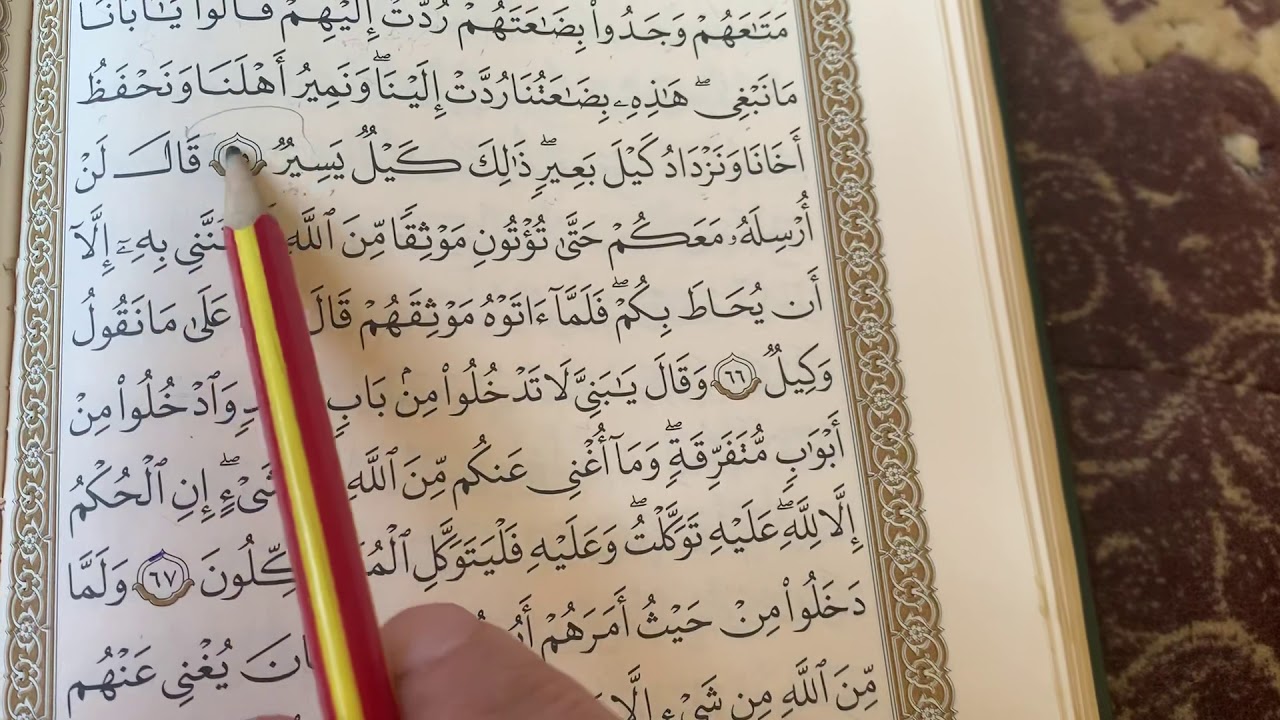 مَتَٰعَهُمْ وَجَدُوا۟ بِضَٰعَتَهُمْ رُدَّتْ إِلَيْهِمْ قَالُوا۟ يَٰٓأَبَانَا
مَا نَبْغِى ۖ هَٰذِهِۦ بِضَٰعَتُنَا رُدَّتْ إِلَيْنَا ۖ وَنَمِيرُ أَهْلَنَا وَنَحْفَظُ
أَخَانَا وَنَزْدَادُ كَيْلَ بَعِيرٍ ۖ ذَٰلِكَ كَيْلٌ يَسِيرٌ قَالَ لَنْ
أُرْسِلَهُۥ مَعَكُمْ حَتَّىٰ تُؤْتُونِ مَوْثِقًا مِّنَ ٱللَّهِ بِهِۦٓ إِلَّآ
أَن يُحَاطَ بِكُمْ ۖ فَلَمَّآ ءَاتَوْهُ مَوْثِقَهُمْ قَالَ عَلَىٰ مَا نَقُولُ
وَكِيلٌ ٦٦ وَقَالَ يَٰبَنِىَّ لَا تَدْخُلُوا۟ مِنۢ بَابٍ وَٱدْخُلُوا۟ مِنْ
أَبْوَٰبٍ مُّتَفَرِّقَةٍ ۖ وَمَآ أُغْنِى عَنكُم مِّنَ ٱللَّهِ شَىْءٍ ۖ إِنِ ٱلْحُكْمُ
إِلَّا لِلَّهِ ۖ عَلَيْهِ تَوَكَّلْتُ ۖ وَعَلَيْهِ فَلْيَتَوَكَّلِ ٱلْمُتَوَكِّلُونَ ٦٧ وَلَمَّا
دَخَلُوا۟ مِنْ حَيْثُ أَمَرَهُمْ
مِّنَ ٱللَّهِ مِن شَىْءٍ إِلَّا يُغْنِى عَنْهُم